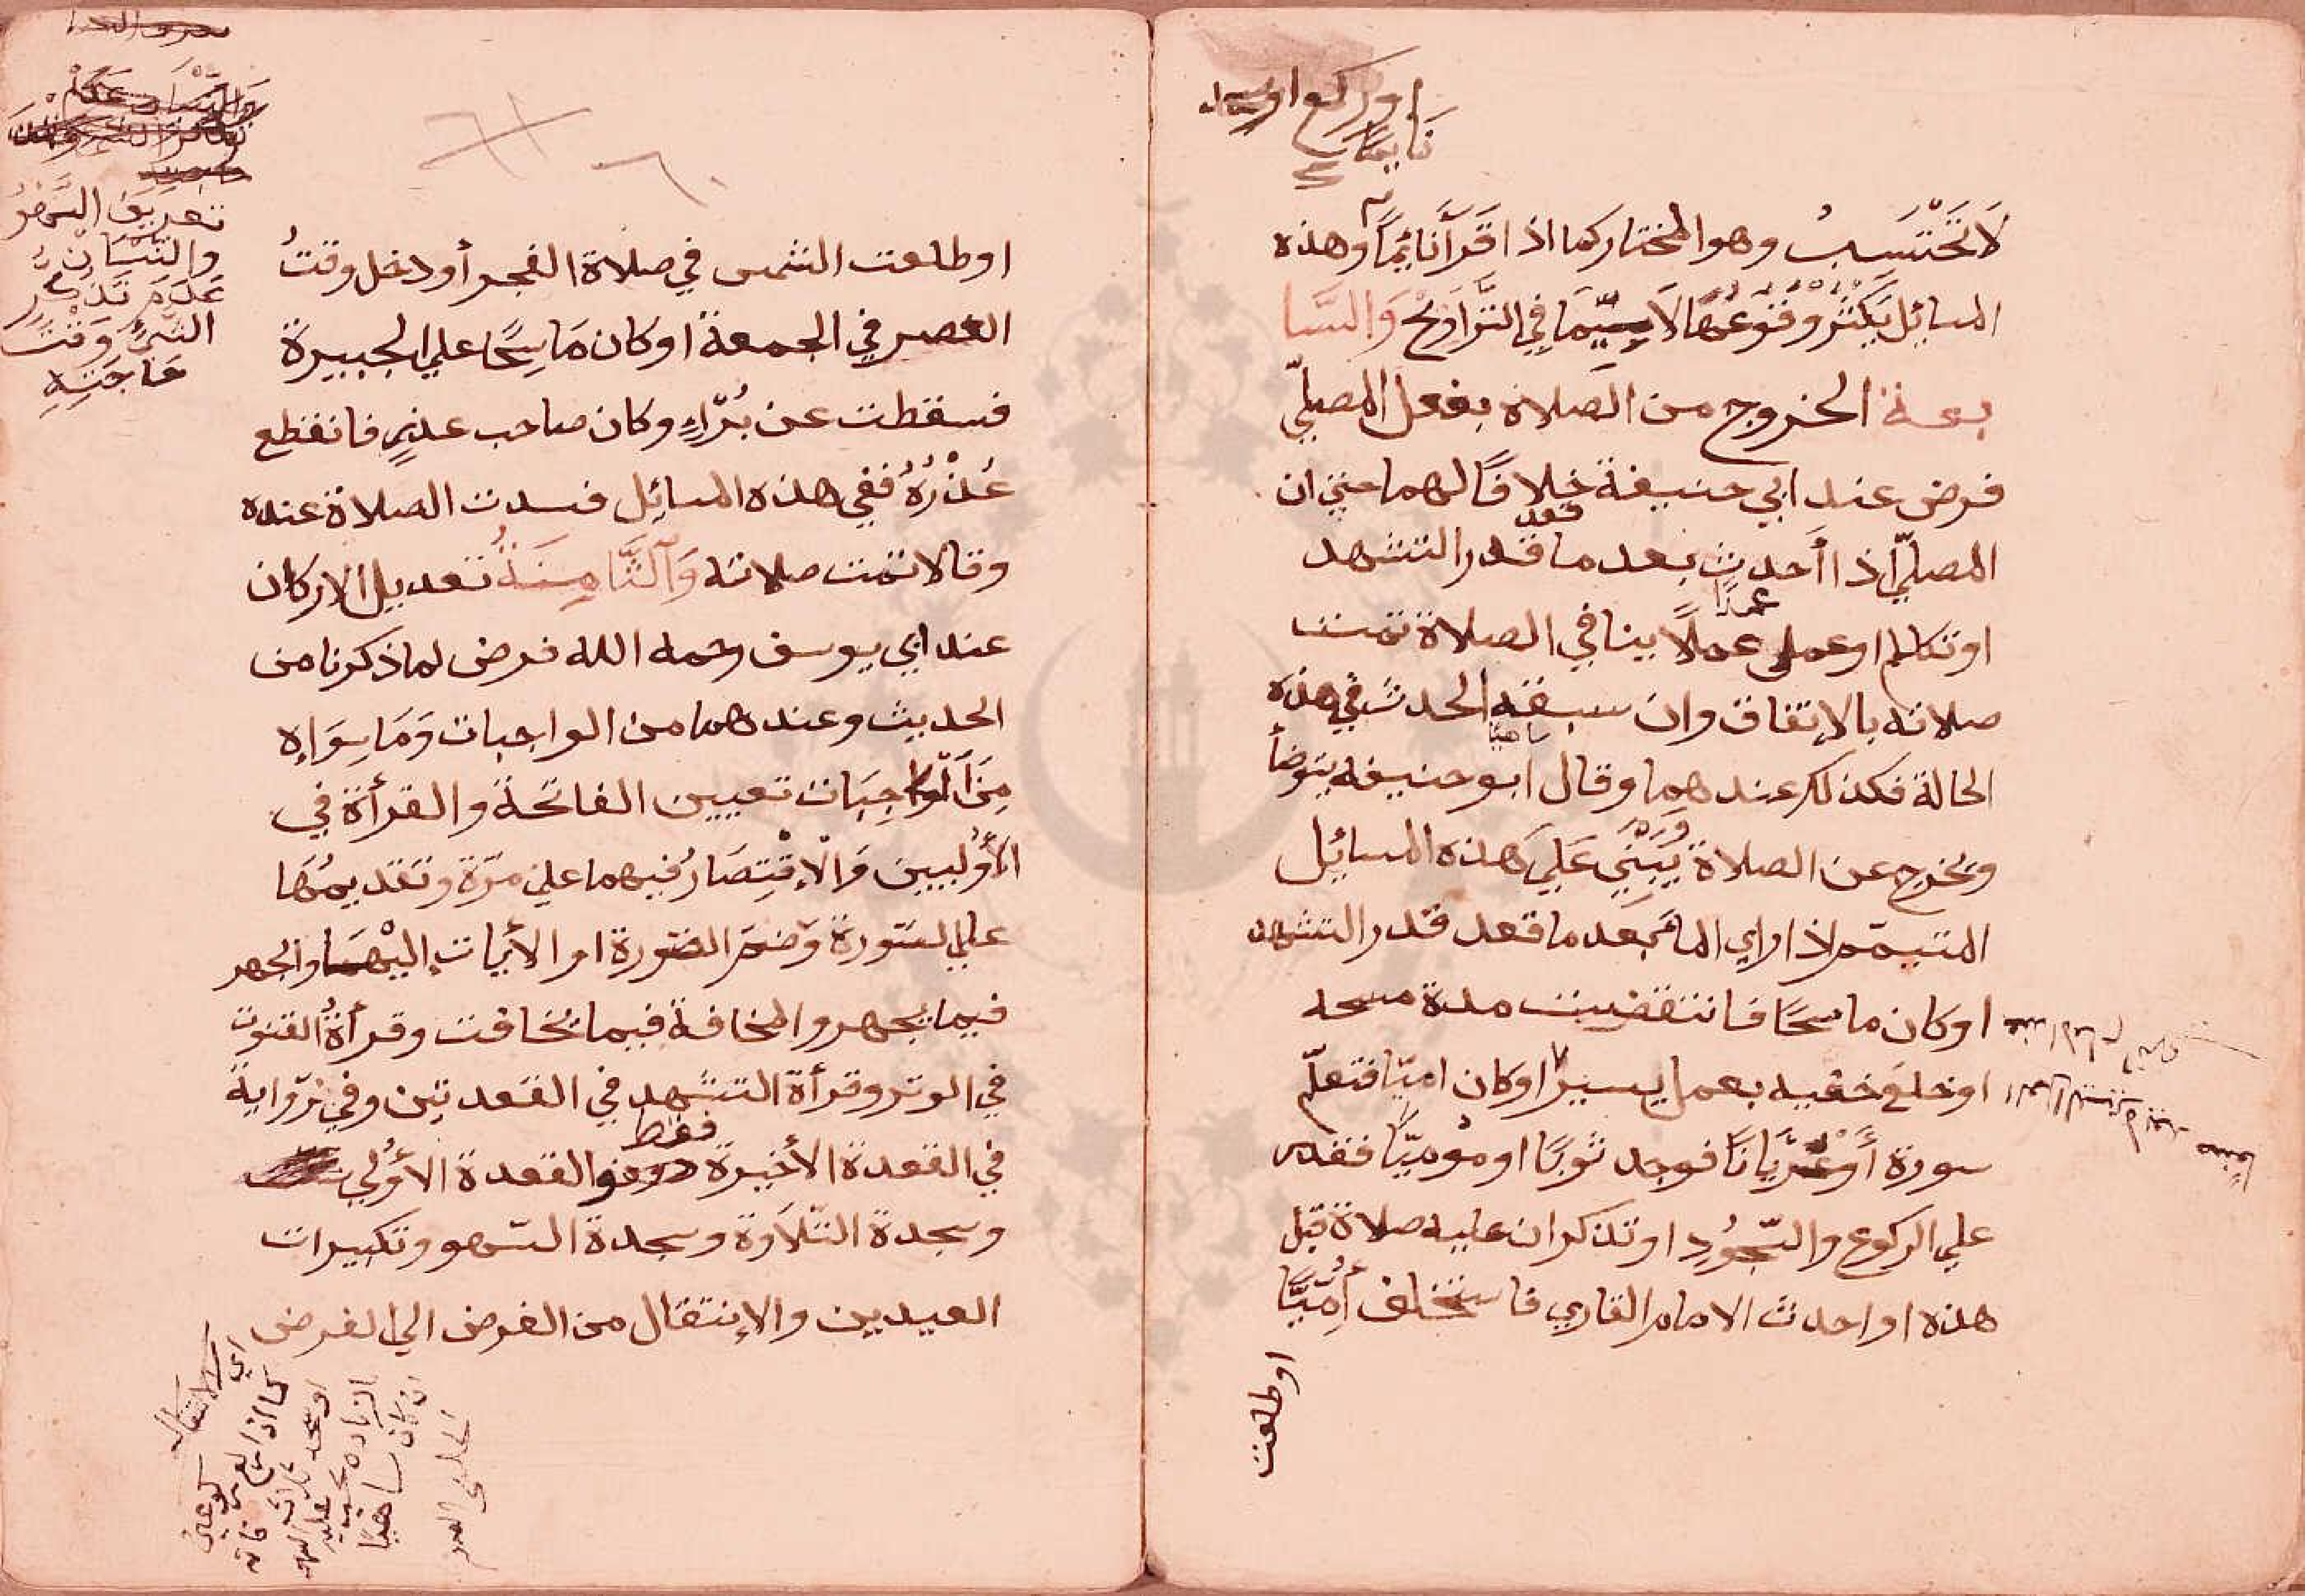 او ركع او سجد
نايما
لَا تَحْتَسَبُ وهو المختار كما اذا قَرَأَ نَائِمًا وهذه
المسائِل يَكْثُرُ وُقُوعُهَا لَا سِيَّمَا فِي التَّرَاوِيْحِ وَالسَّا
بعة الخروج من الصلاة بفعل المصلّي
فرض عند ابي حنيفة خِلَافًا لهما حتي ان
المصلّي اذا أَحدث بعد ما قعد قدر التشهد
او تكلم او عمل عملًا ينافي الصلاة تمت
عمدًا
صلاته بالإتفاق وان سبقه الحدث في هذه
ساهيًا
الحالة فكذلك عندهما وقال ابو حنيفه يتوضأ
ويخرج عن الصلاة يُبْنَي عَلَي هذه المسائِل
المتيمّم اذا راي الماء بعد ما قعد قدر التشهد
او كان ماسحًا فانقضت مدة مسحه
او خلع خفيه بعمل يسير او كان اميّا فتعلّم
سورة أَوْ عُرْيَانًا فوجد ثوبًا او موميًّا فقدر
علي الركوع والسّجُودِ او تذكر ان عليه صلاة قبل
هذه او احدث الامام القاري فاستخلف اُمِّيًّا
او طلعت
او طلعت الشمس في صلاة الفجر أو دخل وقتُ
العصر في الجمعة او كان مَاسِحًا علي الجبيرة
فسقطت عن بُرْاءٍ وكان صاحب عذرٍ فانقطع
عُذْرُهُ ففي هذه المسائِل فسدت الصلاة عنده
وقالا تمت صلاته وَالثَّامِنَةُ تعديل الاركان
عند ابي يوسف رحمه الله فرض لما ذكرنا من
الحديث وعندهما من الواجبات وَمَا سِوَاهُ
مِنَ الْوَاجِبَات تعيين الفاتحة والقرأة في
الأُوليين وَالْاِقْتِصَارُ فيهما علي مرّة وتقديمُهَا
علي السّورة وَضمّ السّورة او الأيات اليْهَا والجهر
فيما يجهر والمخافة فيما يخافت وقرأةُ القنوت
في الوتر وقرأة التشهد في القعدتين وفي رّواية
في القعدة الأخيرة فقط والقعدة الأولي
وسجدة التّلَاوة وسجدة السّهو وتكبيرات
العيدين والإنتقال من الفرض الي الفرض
تعريف السَّهْوُ
والنّسْيَانُ
عَدَمُ تَذَكُّرِ
الشَّيْءِ وَقْتَ
حَاجَتِهِ
اي الانتقال
كما اذا ركع ركوعين
او سجد ثلاث
الزيادة يجب عليه
ان كان ساهيًا